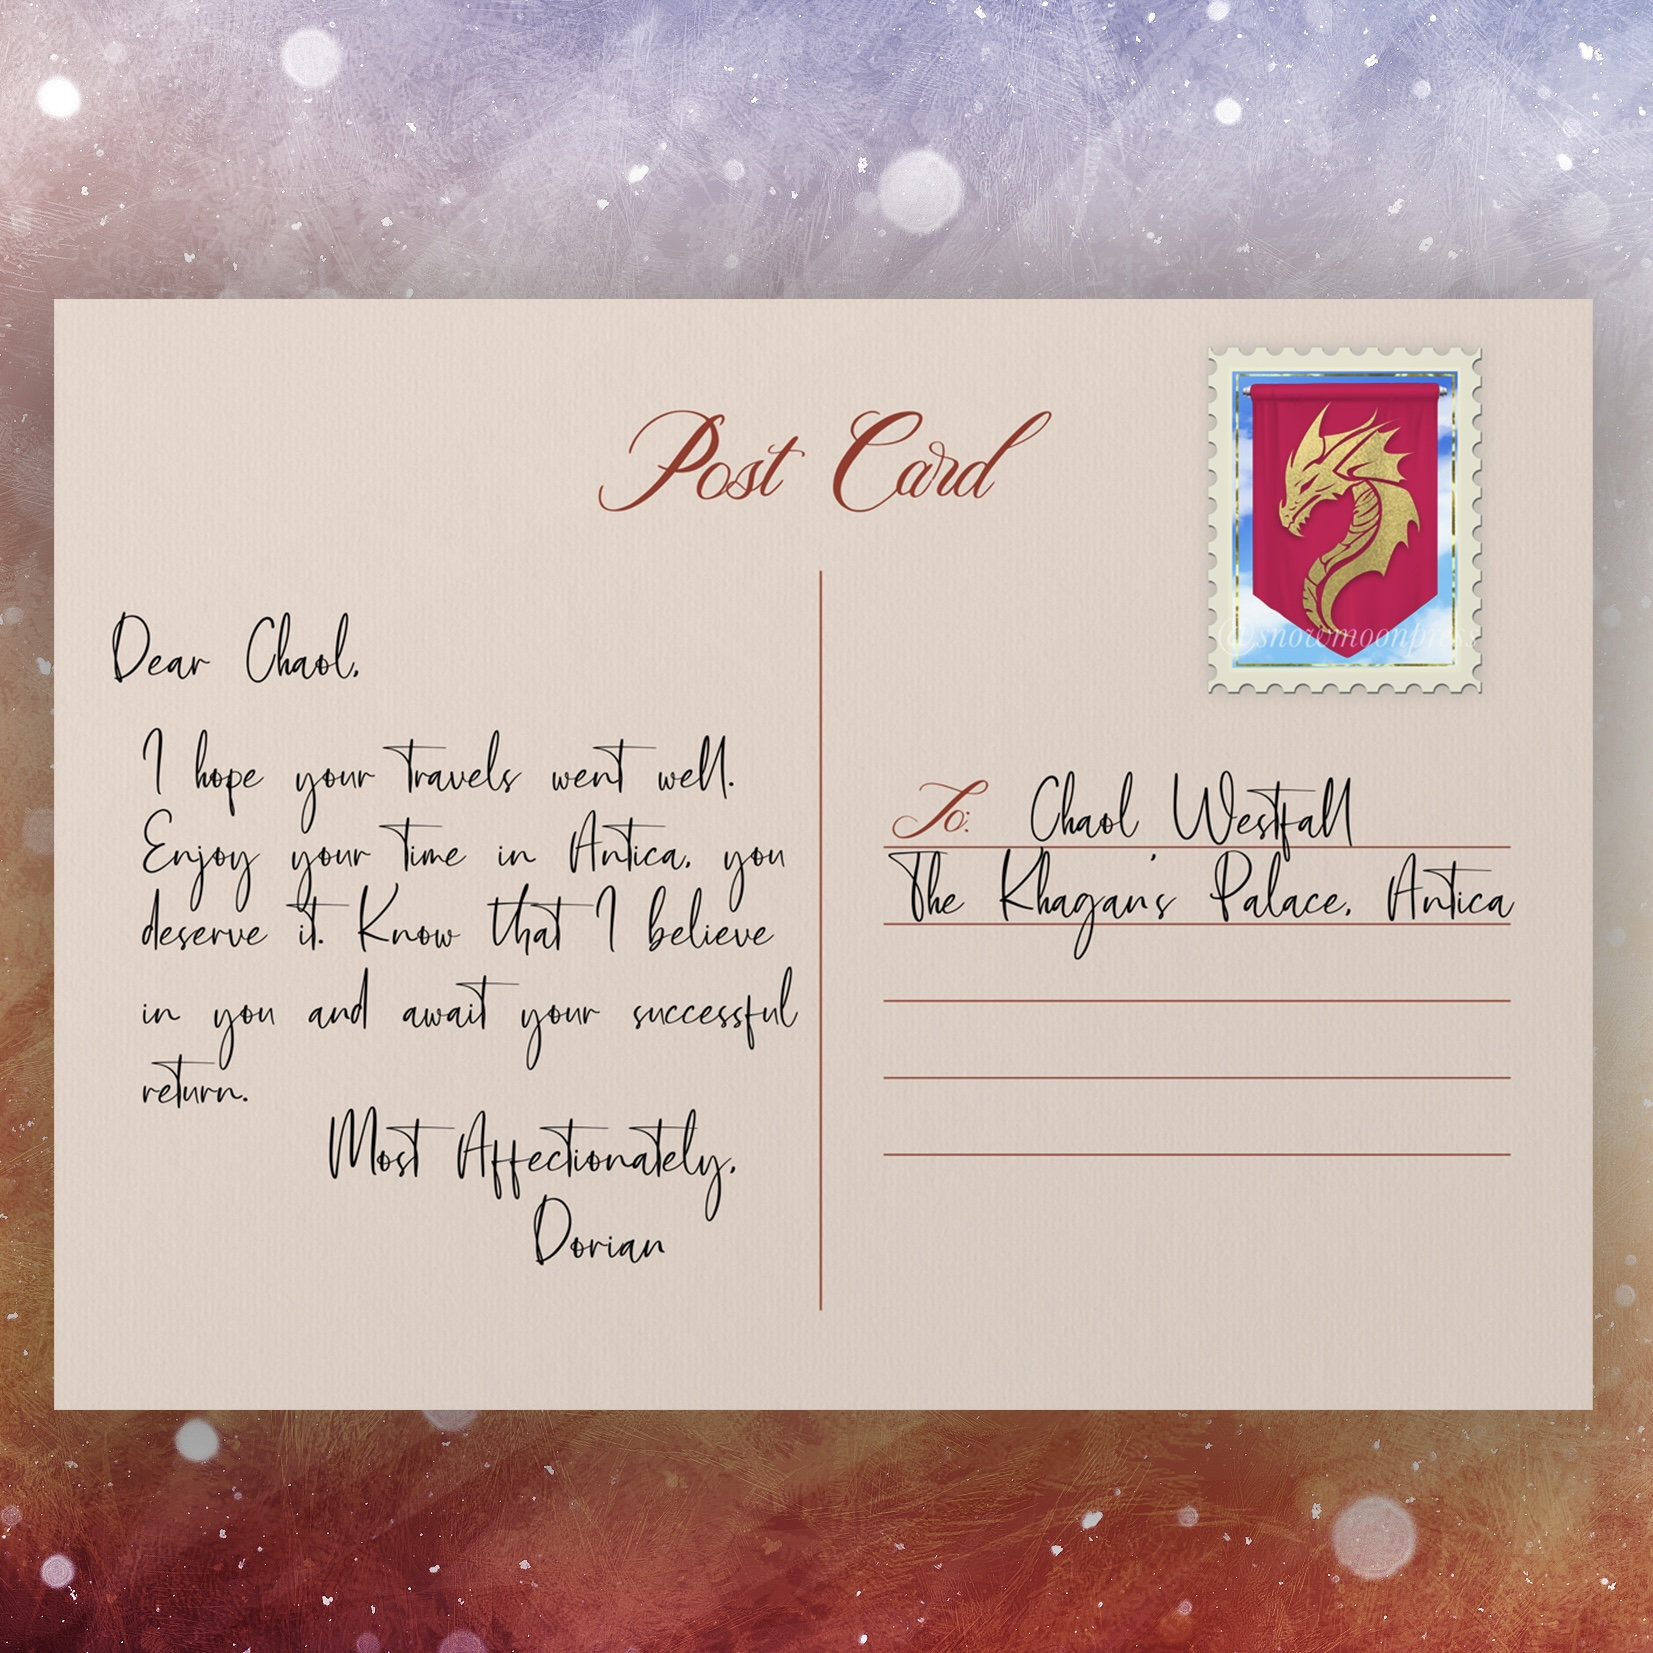 Post Card
@snowmoonpress
Dear Chaol,
I hope your travels went well.
Enjoy your time in Antica, you
deserve it. Know that I believe
in you and await your successful
return.
Most Affectionately,
Dorian
To: Chaol Westfall
The Khagan's Palace, Antica